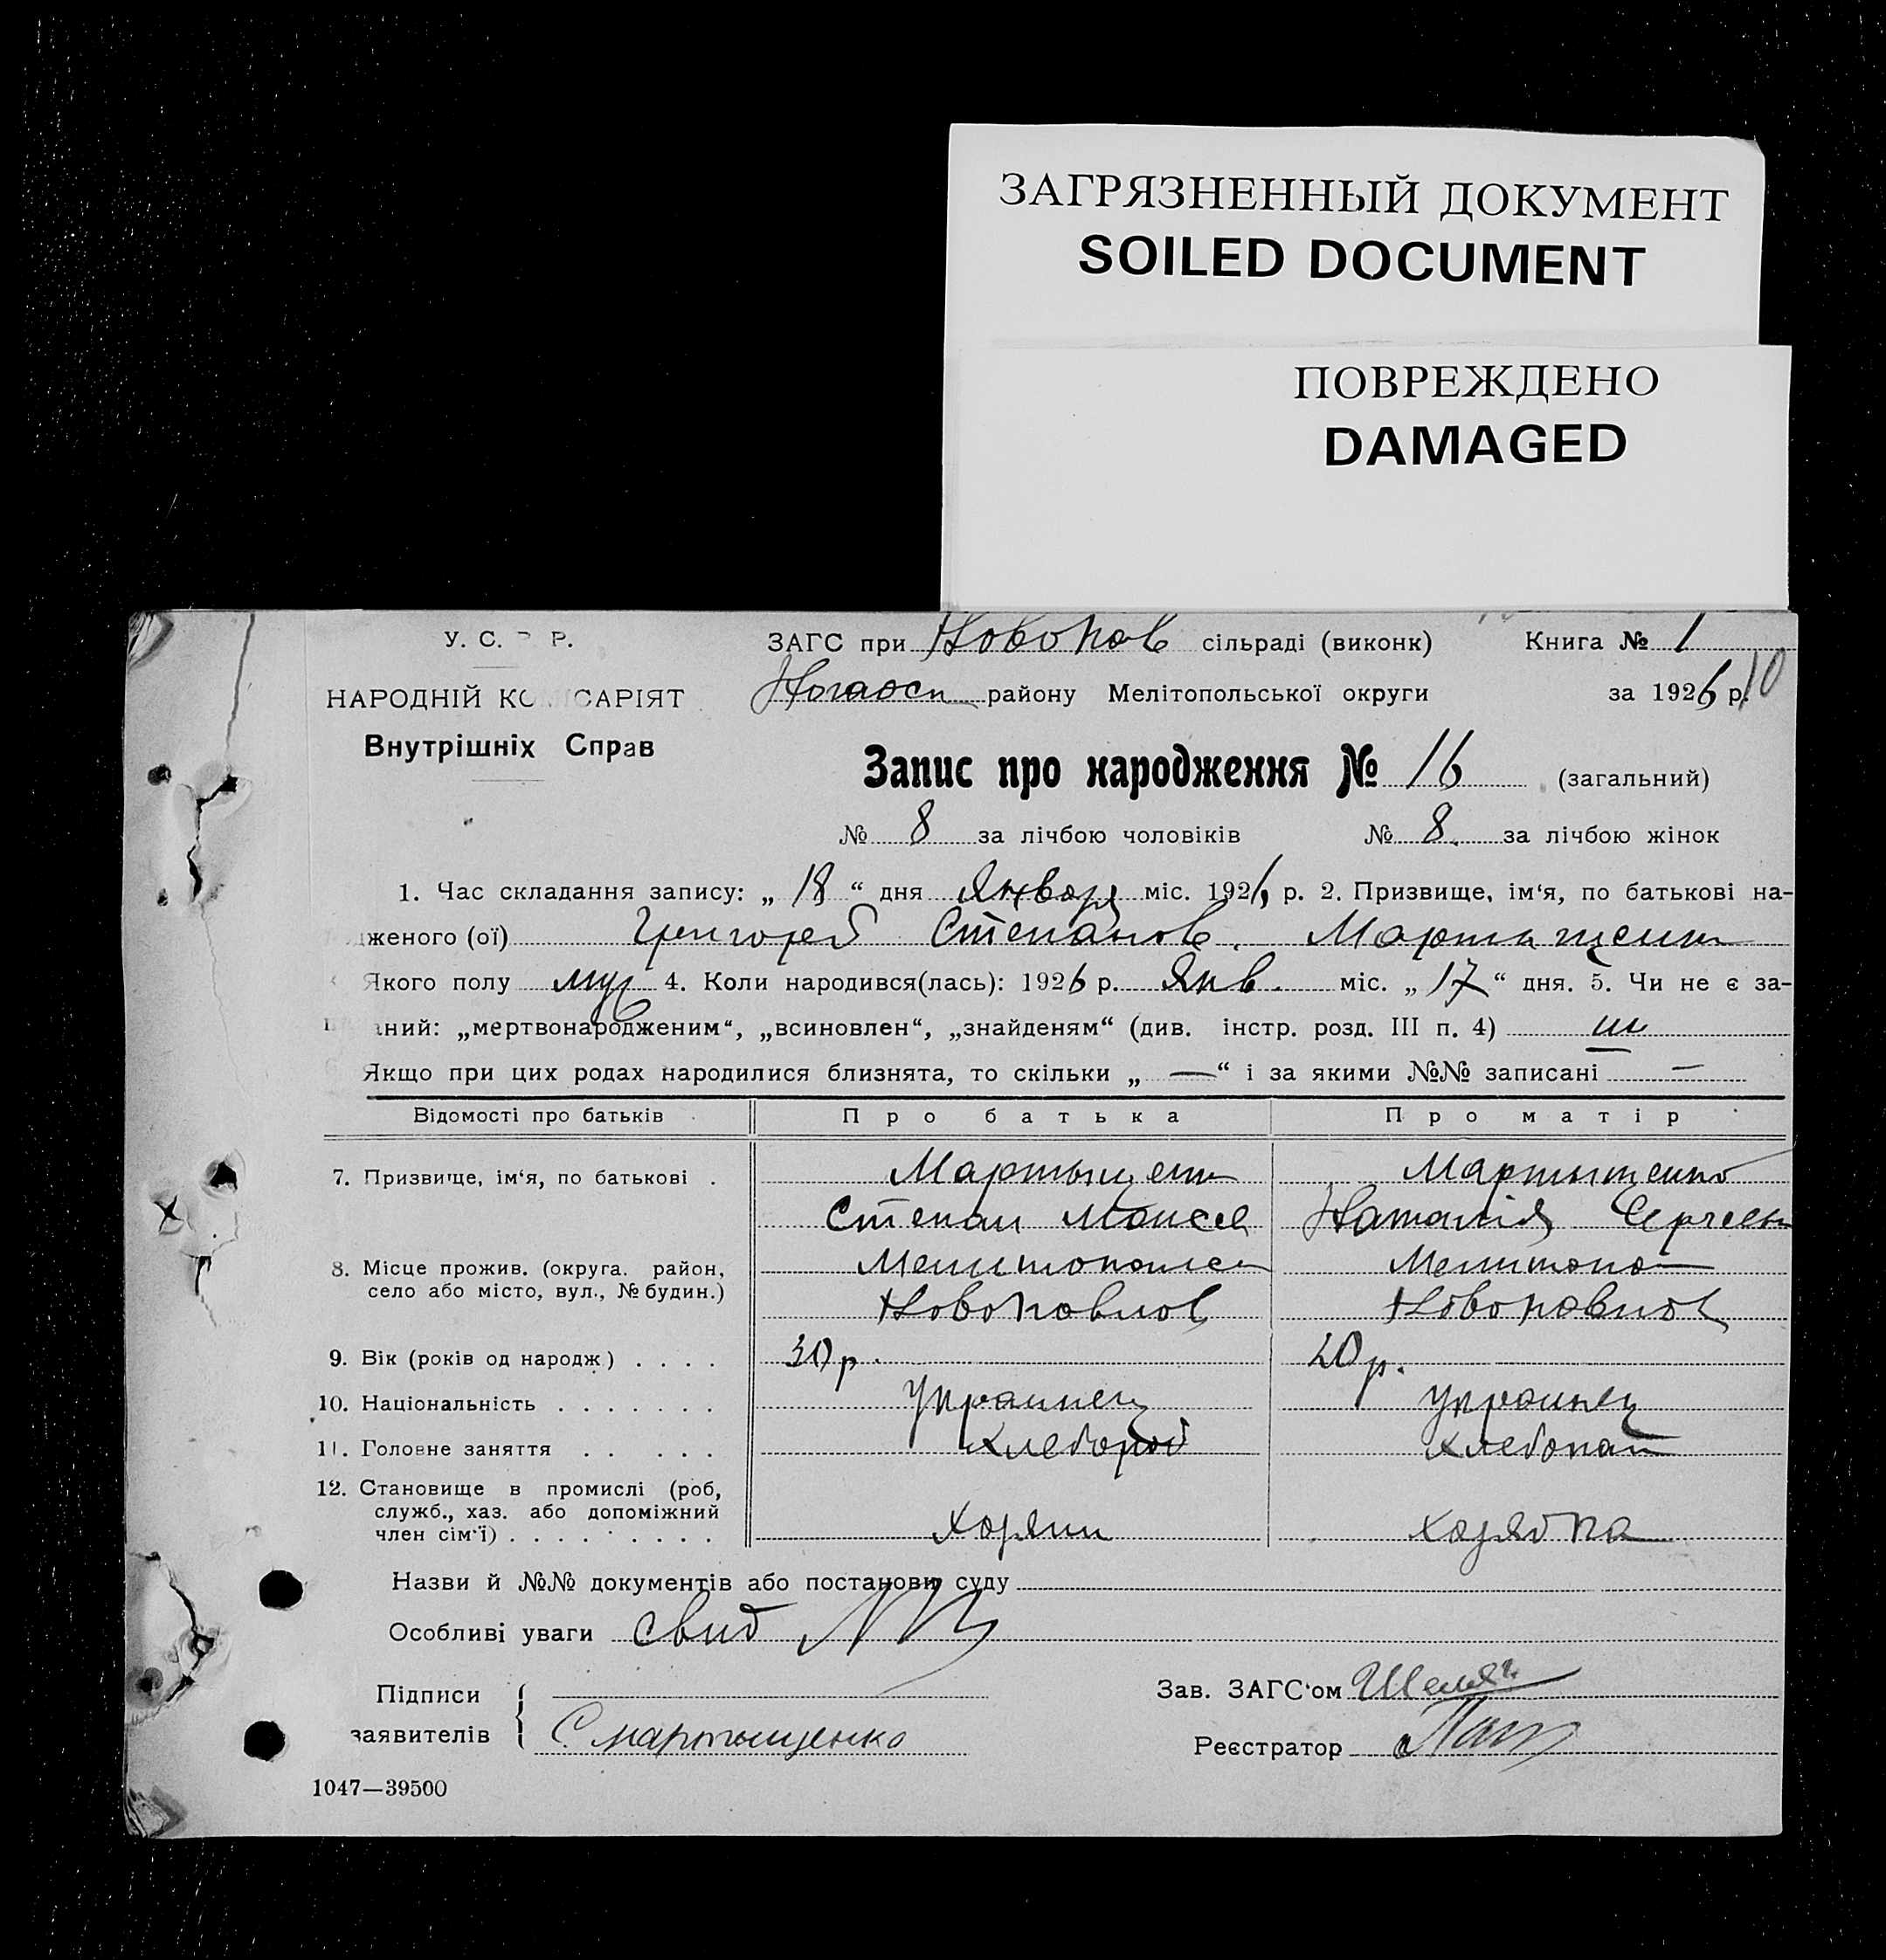 ЗАГРЯЗНЕННЫЙ ДОКУМЕНТ
SOILED DOCUMENT
ПОВРЕЖДЕНО
DAMAGED
У. С. Р.
ЗАГС при Новопав сільраді (виконк) Книга № 1
НАРОДНІЙ КО САРІЯТ
Ногайск району Мелітопольської округи за 1926 р. 10
Внутрішніх Справ
Запис про народження № 16 (загальний)
№ 8 за лічбою чоловіків № 8. за лічбою жінок
1. Час складання запису: „ 18 “ дня Января міс. 1926 р. 2. Призвище, ім'я, по батькові на-
женого (ої) Григорей Степанов. Мартыщенк
Якого полу муж 4. Коли народився(лась): 1926 р. Янв. міс. „ 17 “ дня. 5. Чи не є за-
аний: „мертвонародженим“, „всиновлен“, „знайденям“ (див. інстр. розд. III п. 4)
Якщо при цих родах народилися близнята, то скільки „ — “ і за якими №№ записані —
Відомості про батьків Про батька Про матір
7. Призвище, ім'я, по батькові . Мартыщенк Мартыщенко
Степан Моисее Наталія Сергеевн
8. Місце прожив. (округа. район, Мелитопольск Мелитопол
село або місто, вул., № будин.) Новопавлов Новопавлов
9. Вік (років од народж) . . . . 30 р. 20 р.
10. Національність . . . . . . . Украинец Украинец
11. Головне заняття . . . . . Хлебороб Хлебопаш
12. Становище в промислі (роб,
служб., хаз. або допоміжний
член сім'ї) . . . . . . . . . Хозяин Хозяйка
Назви й №№ документів або постанови суду
Особливі уваги свид
Підписи Зав. ЗАГС'ом
заявителів С. Мартыщенко Реєстратор
1047—39500